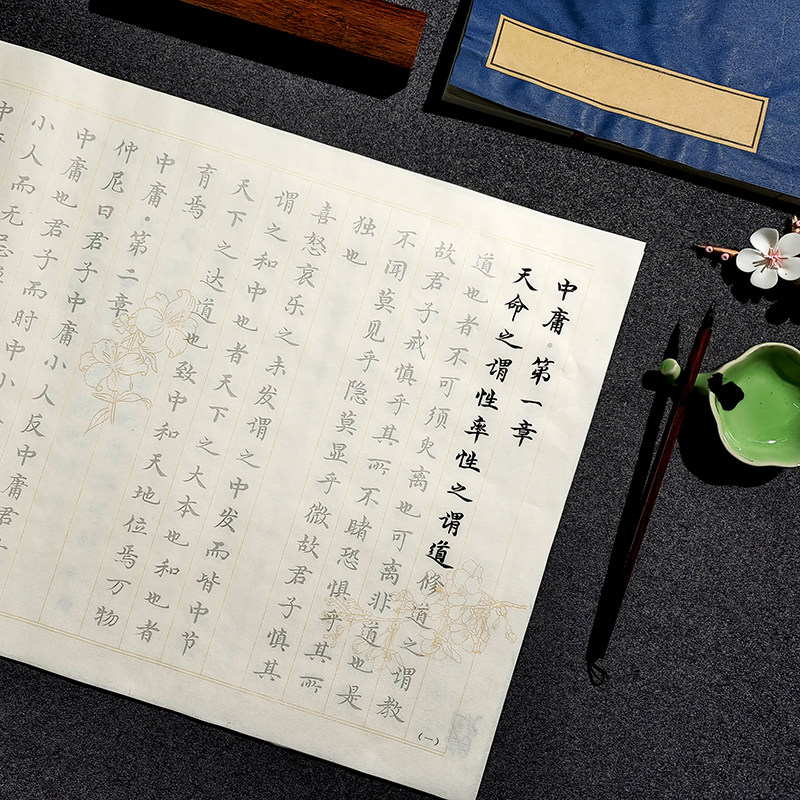 中庸·第一章
天命之谓性率性之谓道修道之谓教
道也者不可须臾离也可离非道也是
故君子戒慎乎其所不睹恐惧乎其所
不闻莫见乎隐莫显乎微故君子慎其
独也
喜怒哀乐之未发谓之中发而皆中节
谓之和中也者天下之大本也和也者
天下之达道也致中和天地位焉万物
育焉
中庸·第二章
仲尼曰君子中庸小人反中庸君子
中庸也君子而时中小
小人而无忌
中
(一)